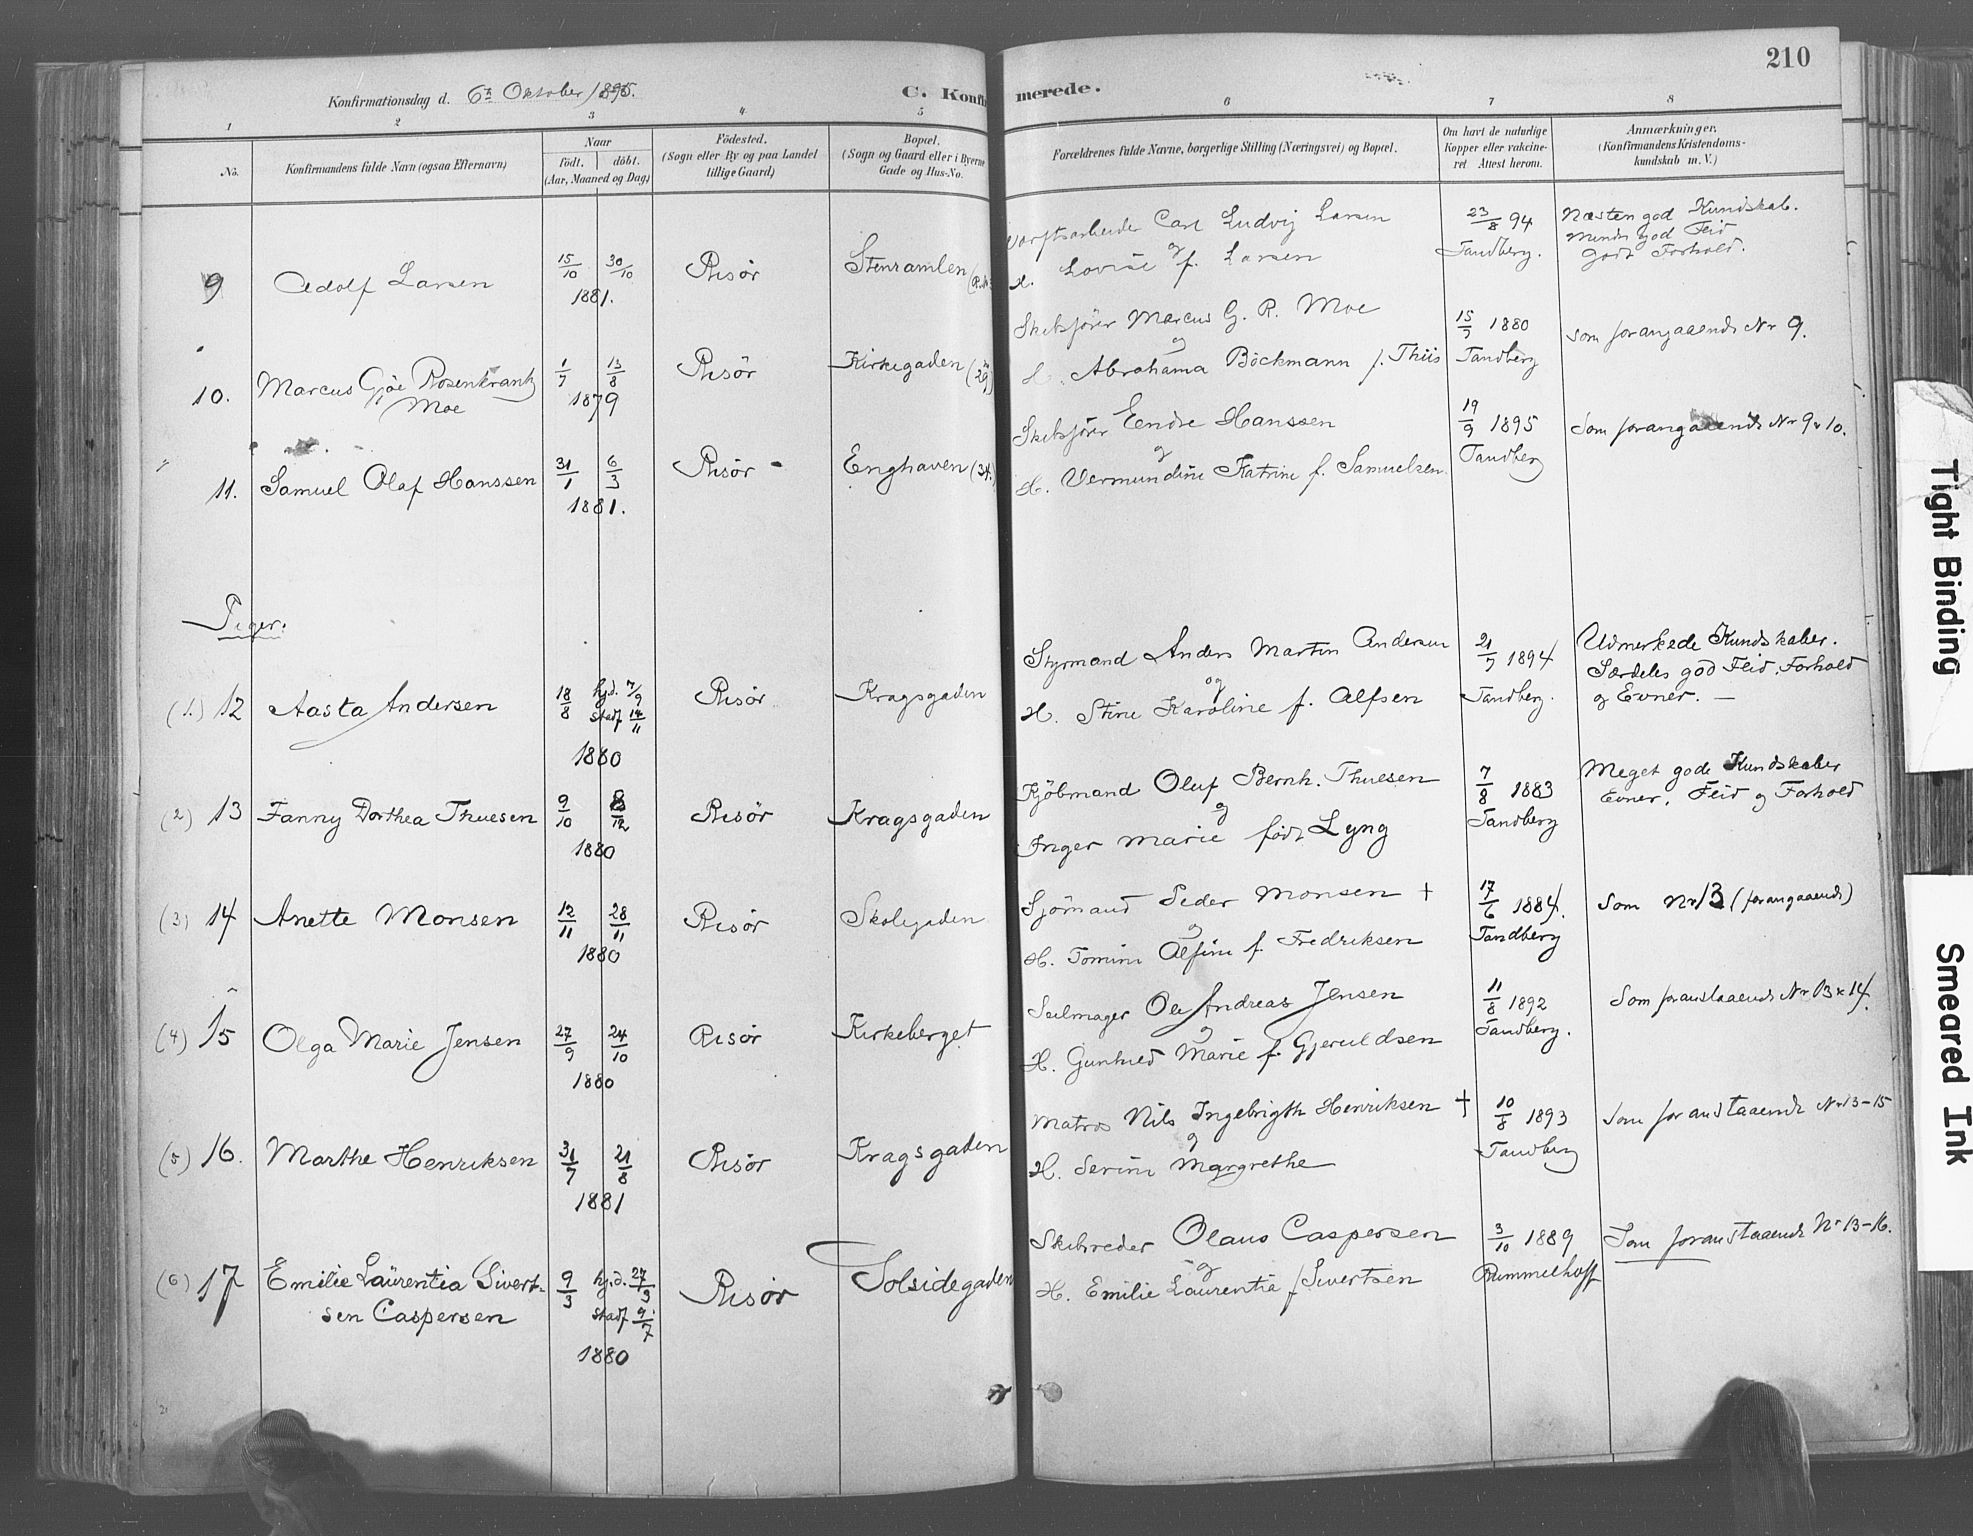 210
Konfirmationsdag d. 6te Oktober 1895.
C. Konfir merede.
1 2 3 4 5 6 7 8
No.
Konfirmandens fulde Navn (ogsaa Efternavn)
Naar
født. døbt.
(Aar, Maaned og Dag)
Fødested.
(Sogn eller By og paa Landet
tillige Gaard)
Bopæl.
(Sogn og Gaard eller i Byerne
Gade og Hus-No.
Forældrenes fulde Navne, borgerlige Stilling (Næringsvei) og Bopæl.
Om havt de naturlige
Kopper eller vakcine-
ret Attest herom.
Anmærkninger.
(Konfirmandens Kristendoms-
kundskab m. V.)
9 Adolf Larsen 15/10 30/10 1881. Risør Stenramlen
Værftsarbeider Carl Ludvig Larsen
og
H. Lovise f. Larsen
23/8 94
Tandberg.
Næsten god Kundskab.
Mindre god Flid
godt Forhold.
10. Marcus Gjøe Rosenkrantz
Moe
1/7 13/8 1879 Risør Kirkegaden (29)
Skibsfører Marcus G. R. Moe
og
H. Abrahama Böckmann f. Thiis
15/9 1880
Tandberg
som forangaaende Nr 9.
11. Samuel Olaf Hanssen 31/1 6/3 1881. Risør Enghaven (34.)
Skibsfører Endre Hanssen
og
H. Vermundine Katrine f. Samuelsen
19/9 1895
Tandberg
som forangaaende Nr 9 & 10.
Piger.
(1.) 12 Aasta Andersen 18/8 hjd. 7/9
stadf 14/11
1880
Risør Kragsgaden
Styrmand Anders Martin Andersen
og
H. Stine Karoline f. Alfsen
21/7 1894
Tandberg.
Udmerkede Kundskaber.
Særdeles god Flid, Forhold
og Evner. —
(2) 13 Fanny Dorthea Thuesen 9/10 8/12 1880 Risør Kragsgaden
Kjøbmand Oluf Bernh. Thuesen
og
Inger Marie født Lyng
7/8 1883
Tandberg
Meget gode Kundskaber
Evner, Flid og Forhold
(3) 14 Anette Monsen 12/11 28/11 1880 Risør Skolegaden
Sjømand Peder Monsen †
og
H. Tomine Alfine f. Fredriksen
17/6 1884.
Tandberg
Som Nr 13 (forangaaende)
(4) 15 Olga Marie Jensen 27/9 24/10 1880 Risør Kirkeberget
Seilmager Ole Andreas Jensen
og
H. Gunhild Marie f. Gjeruldsen
11/8 1892
Tandberg.
Som foranstaaende Nr 13 & 14.
(5) 16. Marthe Henriksen 31/7 21/8 1881 Risør Kragsgaden
Matros Nils Ingebrigth Henriksen †
og
H. Serine Margrethe
10/8 1893
Tandberg
Som foranstaaende Nr 13-15
(6) 17 Emilie Laurentia Sivert-
sen Caspersen
9/3 hj.d. 27/3
stadf 9/7
1880
Risør Solsidegaden
Skibsreder Olaus Caspersen
og
H. Emilie Laurentia f. Sivertsen
3/10 1889
Rummelhoff
Som foranstaaende Nr 13-16.
Tight Binding
Smeared Ink